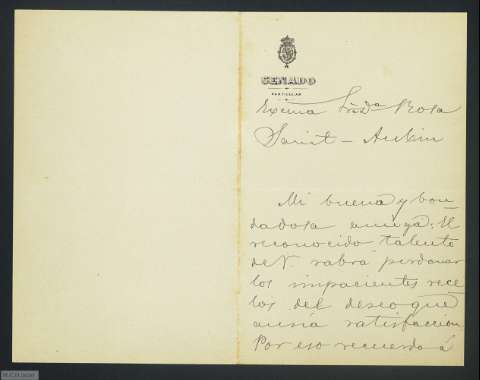 SENADO
PARTICULAR
Excma Sra Dª Rosa
Saint - Aubin
Mi buena y bon-
dadosa amiga: El
reconocido talento
de V. sabrá perdonar
los impacientes rece
los del deseo que
ansía satisfacción
Por eso recuerdo á